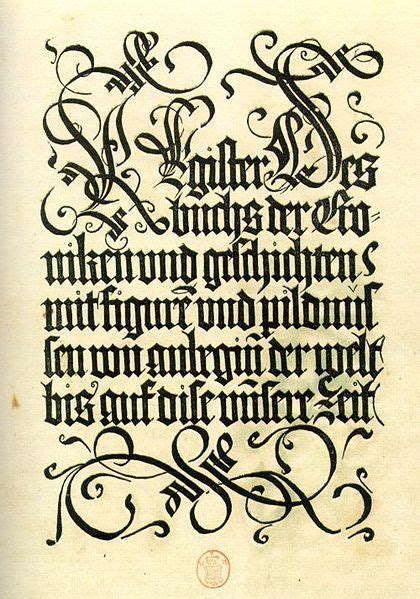 Register Des
buchs der Cro-
niken und geschichten
mit figurē und pildnuſ
ſen von anbegiñ der welt
bis auf diſe unſere Zeit